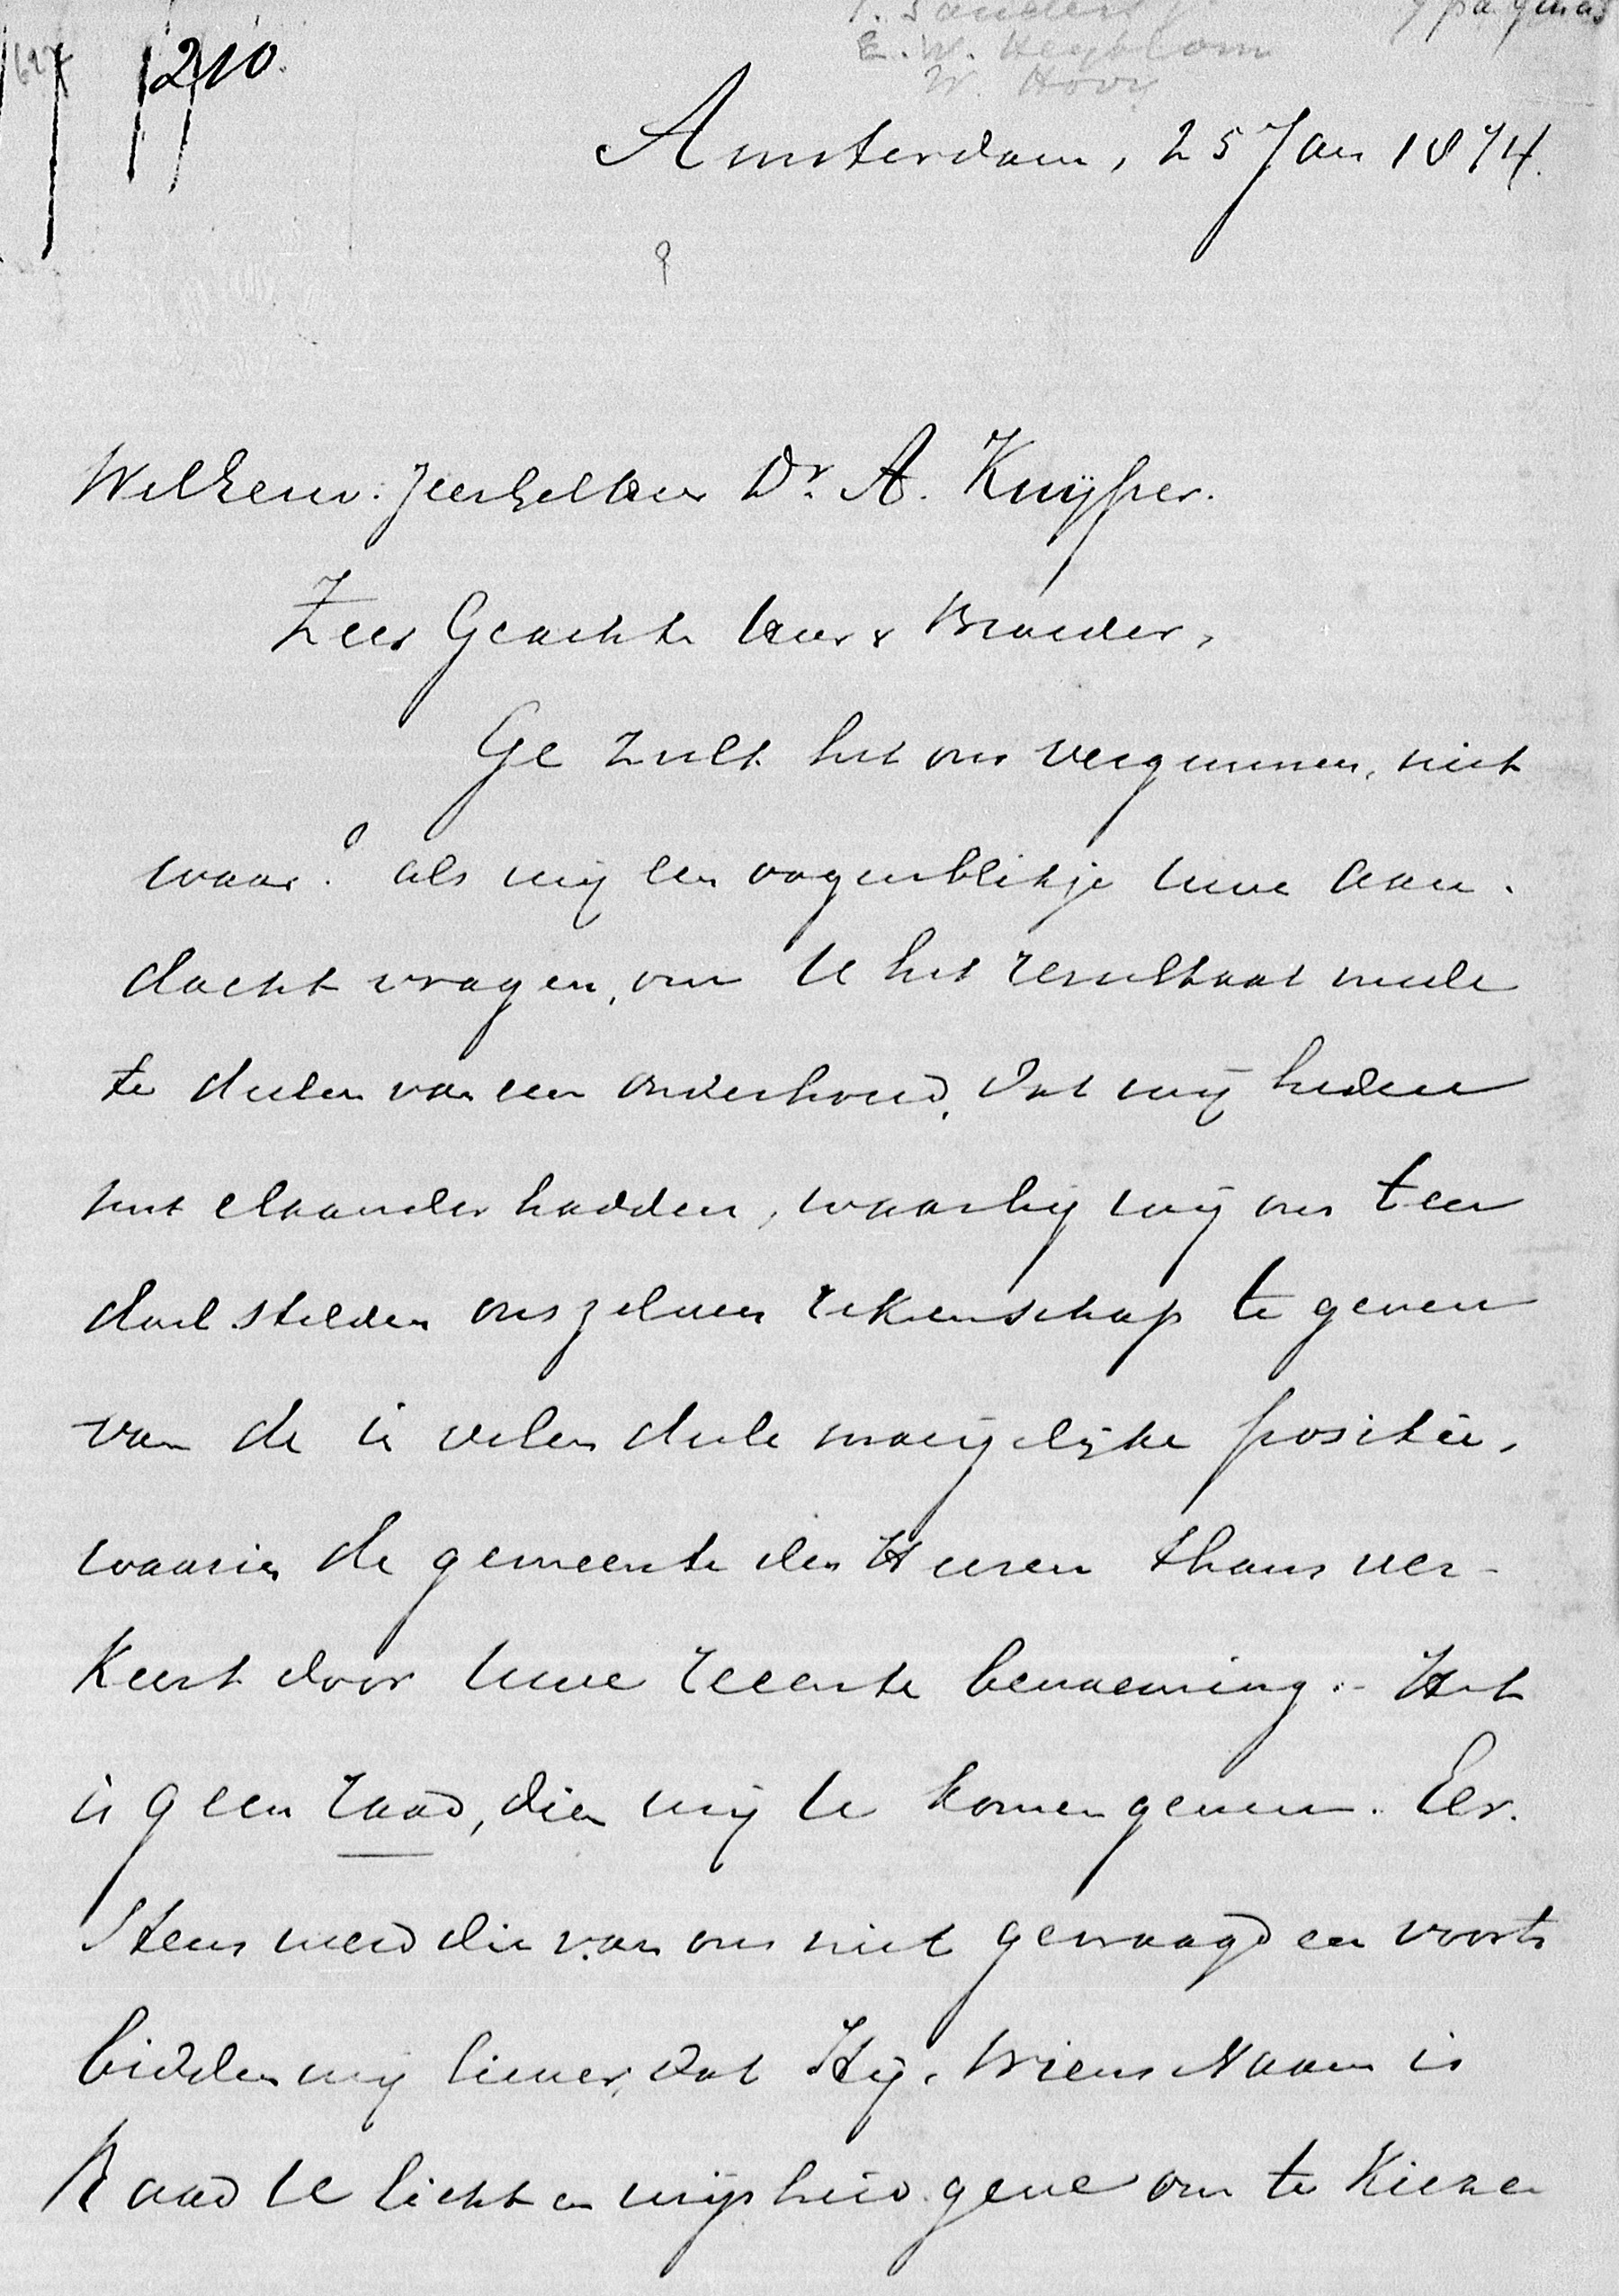 J. Sanders
7 pagina's
E. W. Heyblom
W. Hovy
1210.
Amsterdam, 25 Jan 1874.
WelEerw. Zeergeleer Dr. A. Kuÿper.
Zeer Geachte Heer & Broeder,
Ge zult het ons vergunnen, niet
waar? als wij een oogenblikje Uwe aan-
dacht vragen, om U het resultaat mede
te deelen van een onderhoud, dat wij heden
met elkander hadden, waarbij wij ons ten
doel stelden ons zelven rekenschap te geven
van de in velen deele moeijelijke positie,
waarin de gemeente des Heeren thans ver-
keert door Uwe recente benoeming. - Het
is geen raad, dien wij U komen geven. Eer-
stens werd die van ons niet gevraagd en voorts
bidden wij liever, dat Hij, Wiens Naam is
Raad U licht en wijsheid geve om te kiezen